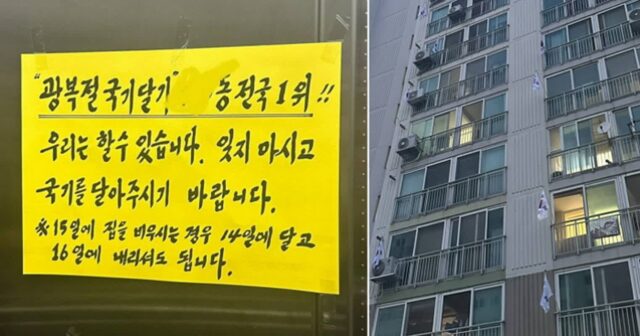 "광복절 국기달기" 동 전국 1위!!
우리는 할수 있습니다. 잊지 마시고
국기를 달아주시기 바랍니다.
※15일에 집을 비우시는 경우 14일에 달고
16일에 내리셔도 됩니다.